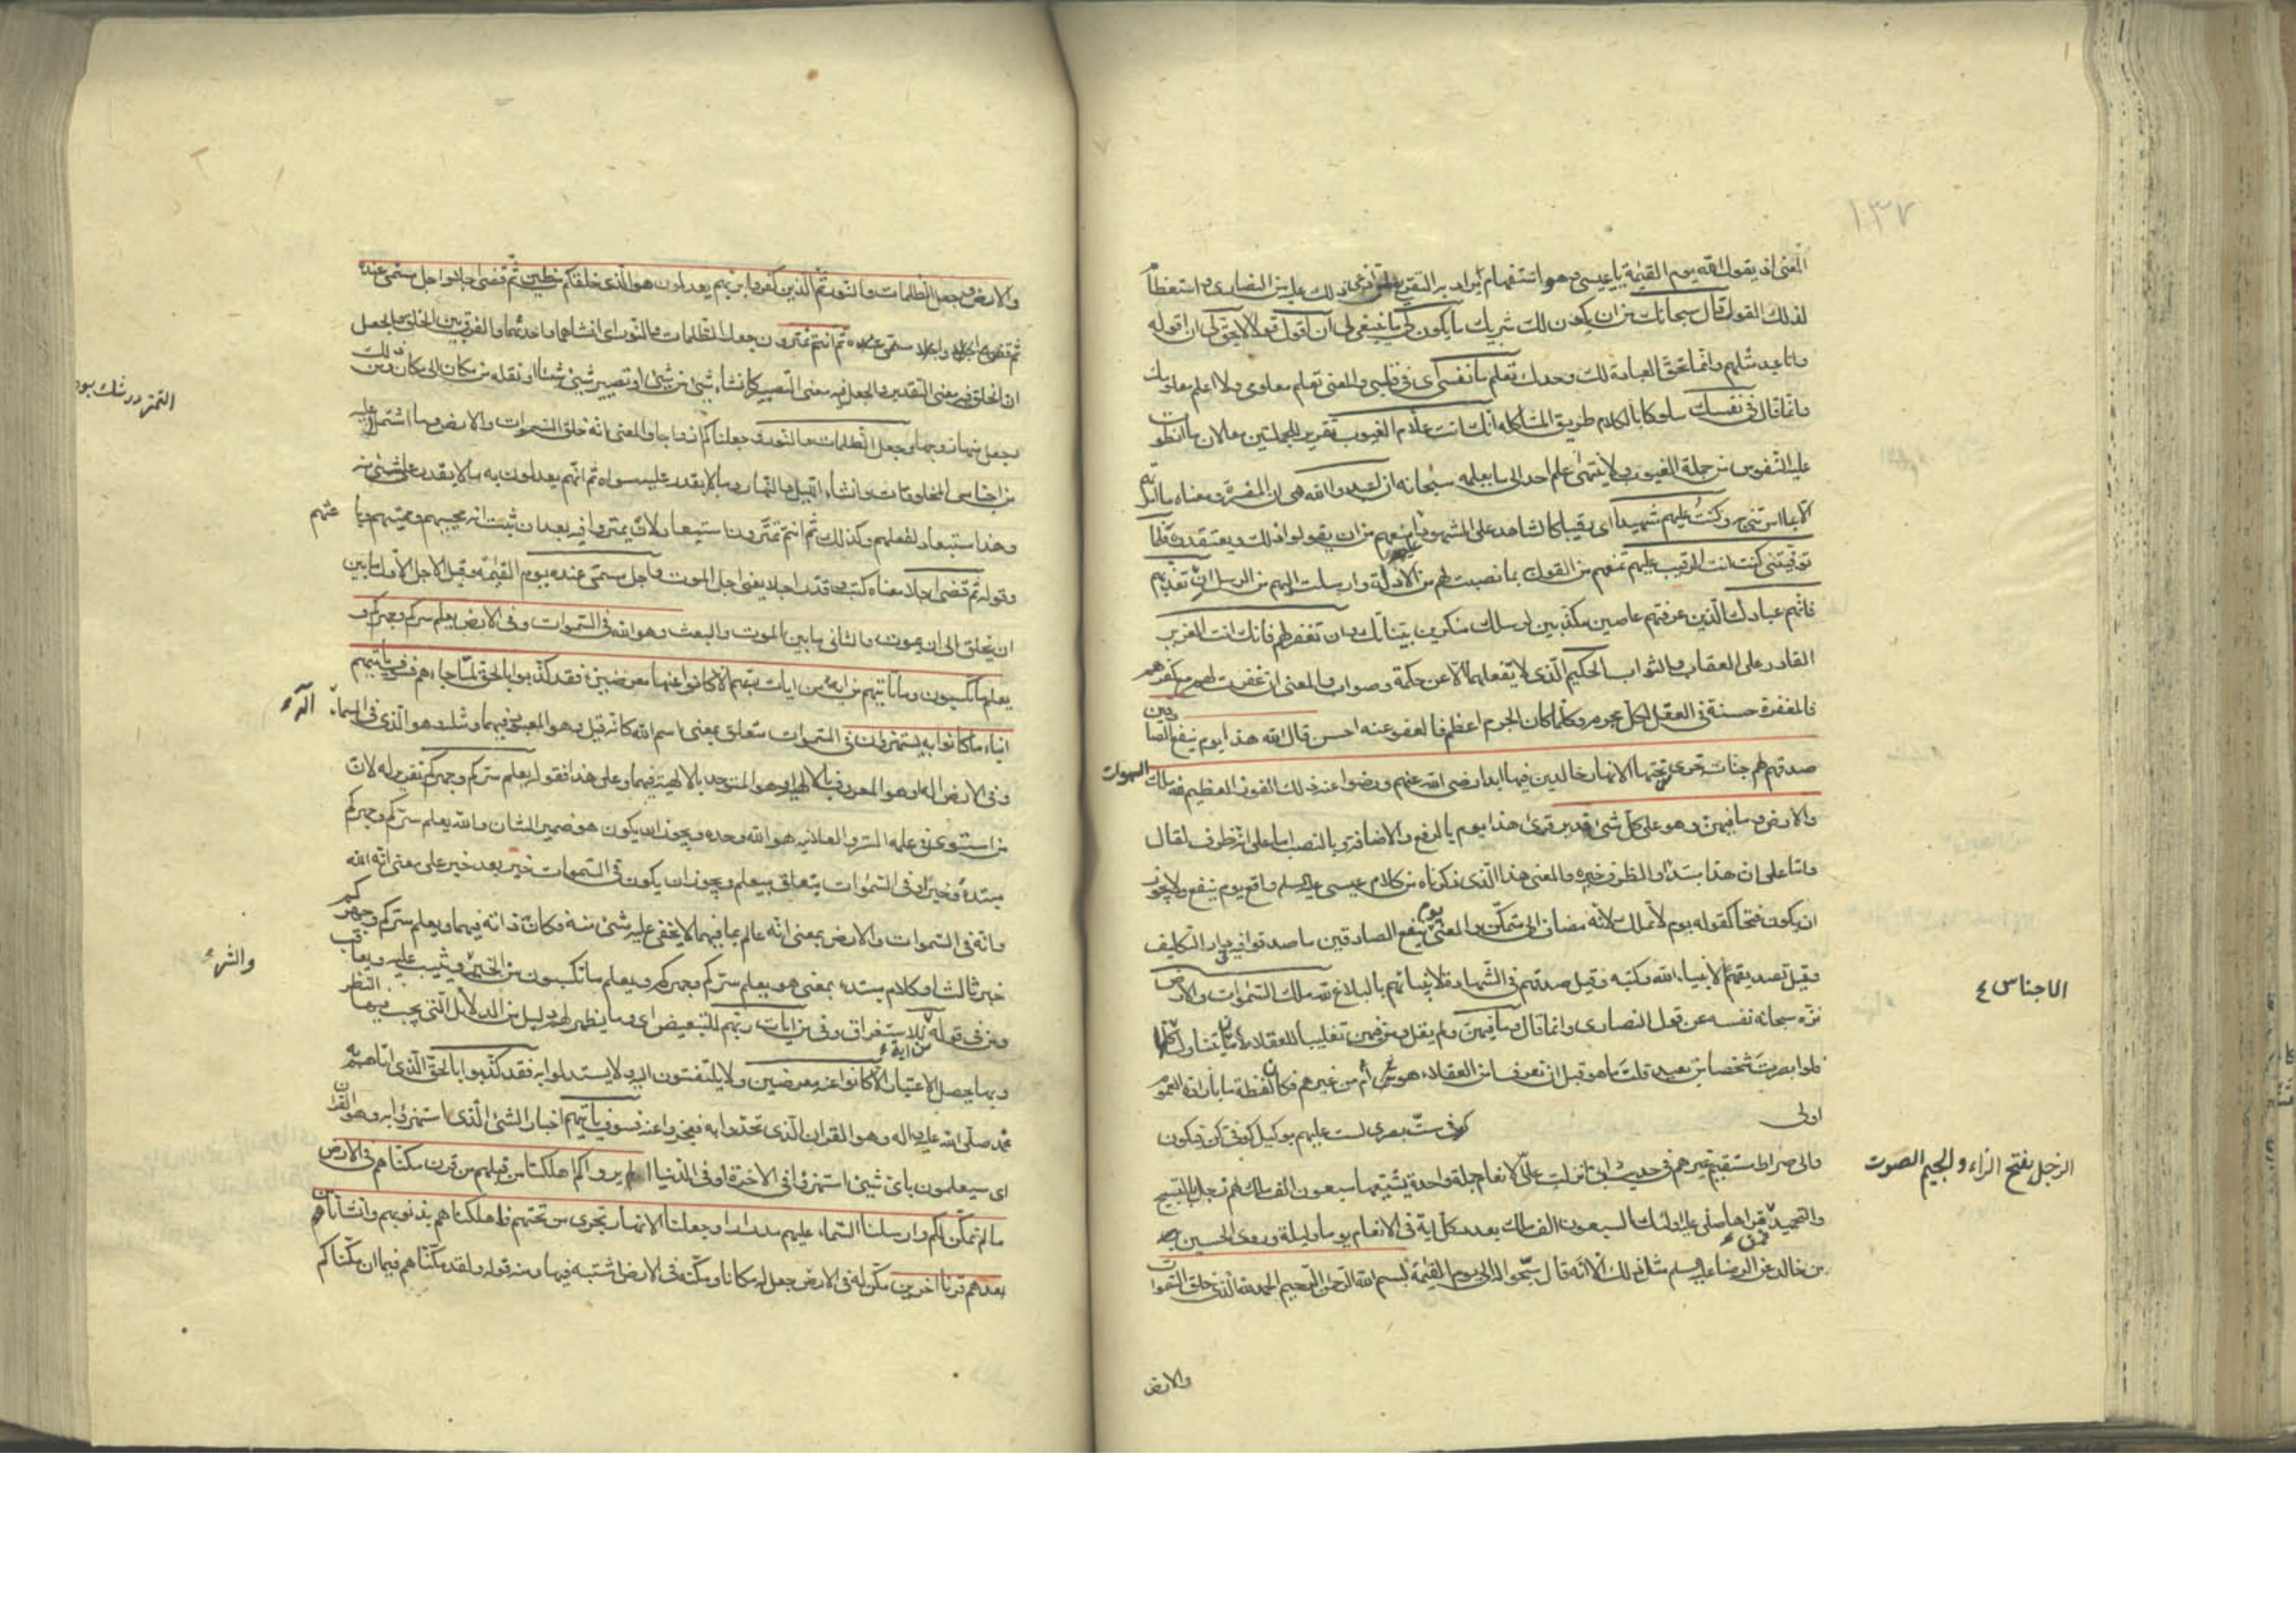 ١٣٧
المعنى اذ يقول الله يوم القيمة يا عيسى وهو استفهام يراد به التقريع ذلك عليه من النصارى واستعظاما
لذلك القول قال سبحانك من ان يكون لك شريك ما يكون لى ما ينبغى لى ان اقول قولا لا يحق لى ان اقوله
وانا عبد مثلهم وانما تحق العبادة لك وحدك تعلم ما نفسى فى قلبى والمعنى تعلم معلومى ولا اعلم معلومك
وانما قال فى نفسك سلوكا بالكلام طريق المشاكلة انك انت علام الغيوب تقرير للجملتين معا لان ما انطوت
عليه النفوس من جملة الغيوب ولا ينتهى علم احد الى ما يعلمه سبحانه ان اعبدوا الله هى ان المفسرة ومعناه ما امرتهم
الا بما امرتنى به وكنت عليهم شهيدا اى رقيبا كالشاهد على المشهود امنعهم من ان يقولوا ذلك ويعتقدوه فلما
توفيتنى كنت انت الرقيب عليهم تمنعهم من القول بما نصبت لهم من الادلة وارسلت اليهم من الرسل ان تعذبهم
فانهم عبادك الذين عرفتهم عاصين مكذبين لرسلك منكرين بيناتك وان تغفر لهم فانك انت العزيز
القادر على العقاب والثواب الحكيم الذى لا يفعلهما الا عن حكمة وصواب والمعنى ان غفرت لهم مع كفرهم
فالمغفرة حسنة فى العقل لكل مجرم وكلما كان الجرم اعظم فالعفو عنه احسن قال الله هذا يوم ينفع الصادقين
صدقهم لهم جنات تجرى من تحتها الانهار خالدين فيها ابدا رضى الله عنهم ورضوا عنه ذلك الفوز العظيم لله ملك السموات
والارض وما فيهن وهو على كل شئ قدير قرئ هذا يوم بالرفع والاضافة وبالنصب اما على انه ظرف لقال
واما على ان هذا مبتدأ والظرف خبره والمعنى هذا الذى ذكرناه من كلام عيسى عليه السلم واقع يوم ينفع ولا يجوز
ان يكون فتحا كقوله يوم لا تملك لانه مضاف الى متمكن والمعنى يوم ينفع الصادقين ما صدقوا فيه فى دار التكليف
وقيل تصديقهم لانبياء الله وكتبه وقيل صدقهم فى الشهادة لانبيائهم بالبلاغ لله ملك السموات والارض
نزه سبحانه نفسه عن قول النصارى وانما قال وما فيهن ولم يقل ومن فيهن تغليبا للعقلاء لان ما يتناول
فلو ابصرت شخصا من بعيد قلت ما هو قبل ان تعرف امن العقلاء هو ام من غيرهم فكان لفظة ما بارادة العموم
اولى
كوفى ست بصرى لست عليهم بوكيل كوفى كن فيكون
والى صراط مستقيم غيرهم فى حديث ابى انزلت على الانعام جملة واحدة يشيعها سبعون الف ملك لهم زجل بالتسبيح
والتحميد فمن قراها صلى عليه اولئك السبعون الف ملك بعدد كل اية فى الانعام يوما وليلة وروى الحسين
بن خالد عن الرضا عليه السلم مثل ذلك الا انه قال سبحوا له الى يوم القيمة بسم الله الرحمن الرحيم الحمد لله الذى خلق السموات
والارض
الاجناس ٤
الزجل بفتح الزاء والجيم الصوت
والارض وجعل الظلمات والنور ثم الذين كفروا بربهم يعدلون هو الذى خلقكم من طين ثم قضى اجلا واجل مسمى عنده
ثم انتم تمترون جعل الظلمات والنور اى انشاهما واحدثهما والفرق بين الخلق والجعل
ان الخلق فيه معنى التقدير والجعل فيه معنى التصيير كانشاء شئ من شئ او تصيير شئ شيئا او نقله من مكان الى مكان ومن ذلك
وجعل منها زوجها وجعل الظلمات والنور وجعلناكم ازواجا والمعنى انه خلق السموات والارض وما اشتمل عليه
من اجناس المخلوقات وانشاء الليل والنهار وما لا يقدر عليه سواه ثم انهم يعدلون به ما لا يقدر على شئ منه
وهذا استبعاد لفعلهم وكذلك ثم انتم تمترون استبعاد لان يمتروا فيه بعد ان ثبت انه محييهم ومميتهم وباعثهم
وقوله ثم قضى اجلا معناه كتب وقدر اجلا يعنى اجل الموت واجل مسمى عنده يوم القيمة وقيل الاجل الاول ما بين
ان يخلق الى ان يموت والثانى ما بين الموت والبعث وهو الله فى السموات وفى الارض يعلم سركم وجهركم و
يعلم ما تكسبون وما تأتيهم من اية من ايات ربهم الا كانوا عنها معرضين فقد كذبوا بالحق لما جاءهم فسوف يأتيهم
انباء ما كانوا به يستهزؤن فى السموات متعلق بمعنى اسم الله كانه قيل وهو المعبود فيهما ومثله هو الذى فى السماء اله
وفى الارض اله او هو المعروف بالالهية او هو المتوحد بالالهية فيهما وعلى هذا فقوله يعلم سركم وجهركم تقرير له لان
من استوى فى علمه السر والعلانية هو الله وحده ويجوز ان يكون هو ضمير الشان والله يعلم سركم وجهركم
مبتدأ وخبرا وفى السموات يتعلق بيعلم ويجوز ان يكون فى السموات خبر بعد خبر على معنى انه الله
وانه فى السموات والارض بمعنى انه عالم بما فيهما لا يخفى عليه شئ منه فكان ذاته فيهما ويعلم سركم وجهركم
خبر ثالث او كلام مبتدء بمعنى هو يعلم سركم وجهركم ويعلم ما تكسبون من الخير ويثيب عليه ويعاقب
ومن فى قوله من اية للاستغراق وفى من ايات ربهم للتبعيض اى وما يظهر لهم دليل من الدلايل التى يجب فيها النظر
وبها يحصل الاعتبار الا كانوا عنه معرضين ولا يلتفتون اليه ولا يستدلوا به فقد كذبوا بالحق الذى اتاهم به
محمد صلى الله عليه واله وهو القران الذى تحدوا به فعجزوا عنه فسوف يأتيهم اخبار الشئ الذى استهزئوا به وهو القران
اى سيعلمون باى شئ استهزؤا فى الاخرة او فى الدنيا الم يروا كم اهلكنا من قبلهم من قرن مكناهم فى الارض
ما لم نمكن لكم وارسلنا السماء عليهم مدرارا وجعلنا الانهار تجرى من تحتهم فاهلكناهم بذنوبهم وانشانا من
بعدهم قرنا اخرين مكن له فى الارض جعل له مكانا ومكنه فى الارض اثبته فيها ومنه قوله ولقد مكناهم فيما ان مكناكم
والشرء